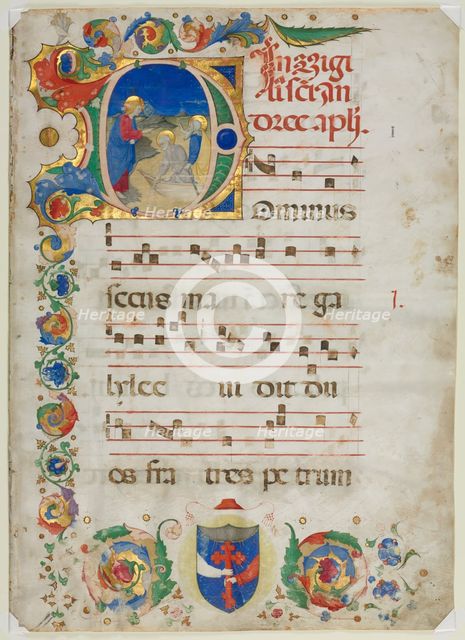 In vigi
li sci An
dree apli.
I
Dominus
secus ma re ga
lylee ui dit du
os fra tres pe trum
Heritage
Heritage
Heritage
Heritage
Heritage
Heritage
Heritage